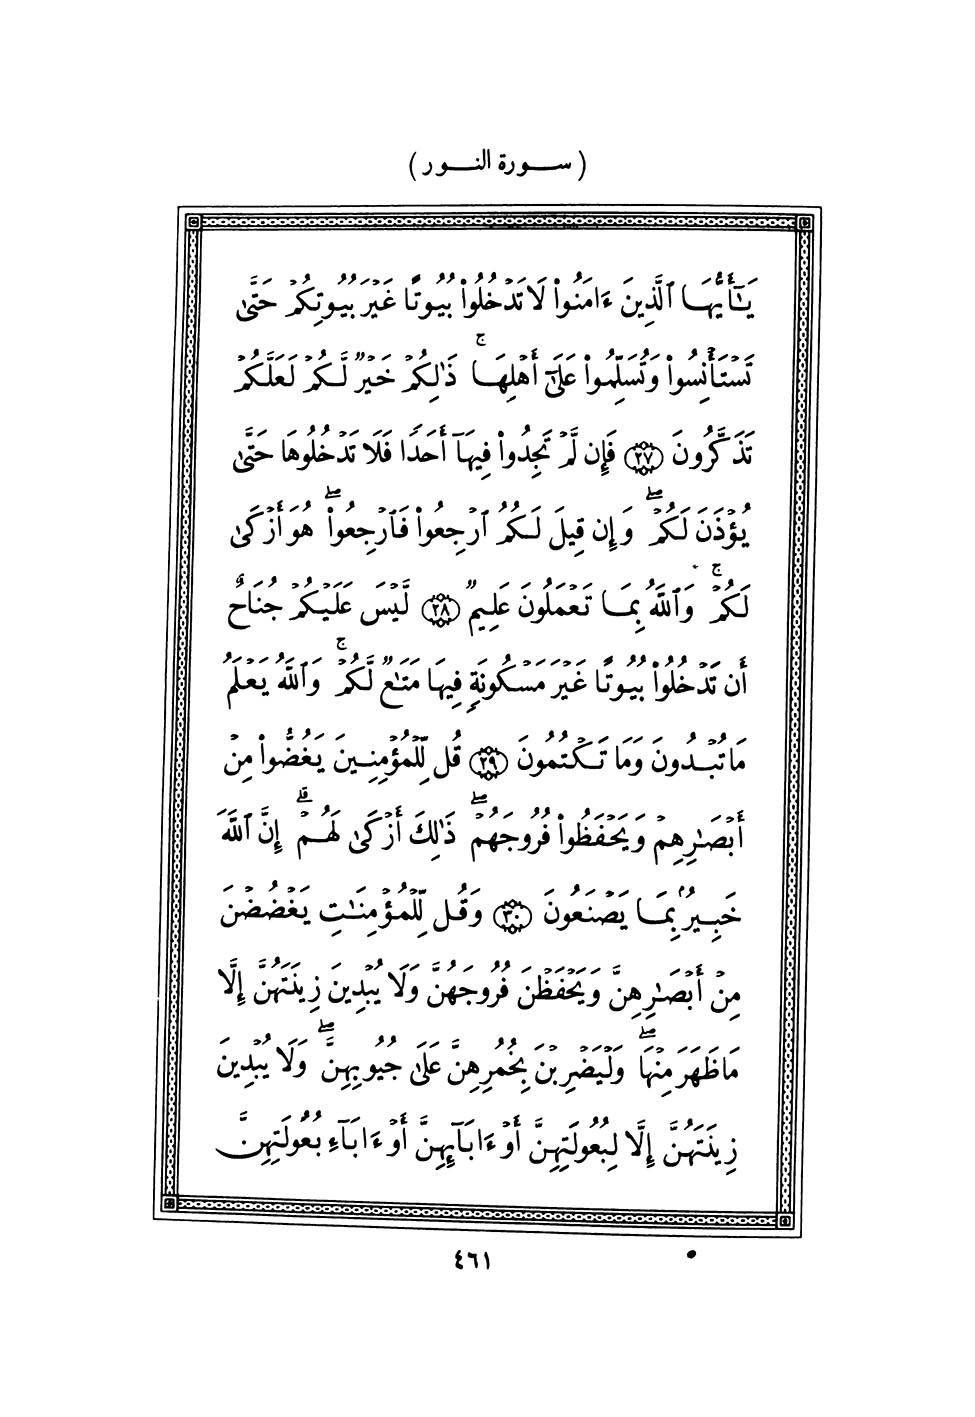 ( ســـورة النـــور )
يَـٰٓأَيُّهَا ٱلَّذِينَ ءَامَنُوا۟ لَا تَدْخُلُوا۟ بُيُوتًا غَيْرَ بُيُوتِكُمْ حَتَّىٰ
تَسْتَأْنِسُوا۟ وَتُسَلِّمُوا۟ عَلَىٰٓ أَهْلِهَا ۚ ذَٰلِكُمْ خَيْرٌ لَّكُمْ لَعَلَّكُمْ
تَذَكَّرُونَ ﴿٢٧﴾ فَإِن لَّمْ تَجِدُوا۟ فِيهَآ أَحَدًا فَلَا تَدْخُلُوهَا حَتَّىٰ
يُؤْذَنَ لَكُمْ ۖ وَإِن قِيلَ لَكُمُ ٱرْجِعُوا۟ فَٱرْجِعُوا۟ ۖ هُوَ أَزْكَىٰ
لَكُمْ ۚ وَٱللَّهُ بِمَا تَعْمَلُونَ عَلِيمٌ ﴿٢٨﴾ لَّيْسَ عَلَيْكُمْ جُنَاحٌ
أَن تَدْخُلُوا۟ بُيُوتًا غَيْرَ مَسْكُونَةٍ فِيهَا مَتَـٰعٌ لَّكُمْ ۚ وَٱللَّهُ يَعْلَمُ
مَا تُبْدُونَ وَمَا تَكْتُمُونَ ﴿٢٩﴾ قُل لِّلْمُؤْمِنِينَ يَغُضُّوا۟ مِنْ
أَبْصَـٰرِهِمْ وَيَحْفَظُوا۟ فُرُوجَهُمْ ۖ ذَٰلِكَ أَزْكَىٰ لَهُمْ ۗ إِنَّ ٱللَّهَ
خَبِيرٌۢ بِمَا يَصْنَعُونَ ﴿٣٠﴾ وَقُل لِّلْمُؤْمِنَـٰتِ يَغْضُضْنَ
مِنْ أَبْصَـٰرِهِنَّ وَيَحْفَظْنَ فُرُوجَهُنَّ وَلَا يُبْدِينَ زِينَتَهُنَّ إِلَّا
مَا ظَهَرَ مِنْهَا ۖ وَلْيَضْرِبْنَ بِخُمُرِهِنَّ عَلَىٰ جُيُوبِهِنَّ ۖ وَلَا يُبْدِينَ
زِينَتَهُنَّ إِلَّا لِبُعُولَتِهِنَّ أَوْ ءَابَآئِهِنَّ أَوْ ءَابَآءِ بُعُولَتِهِنَّ
٤٦١